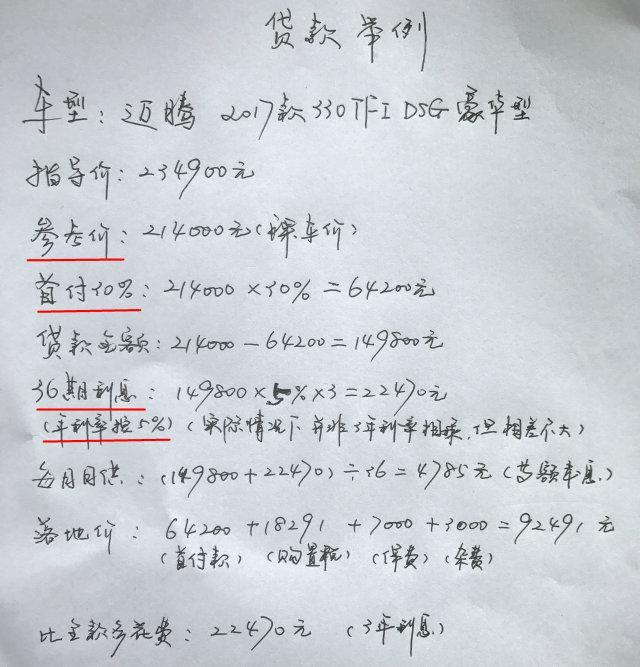 贷款举例
车型：迈腾 2017款330TFI DSG豪华型
指导价：234900元
参考价：214000元（裸车价）
首付30%：214000×30%=64200元
贷款金额：214000-64200=149800元
36期利息：149800×5%×3=22470元
（年利率按5%）（实际情况下并非3年利率相乘，但相差不大）
每月月供：（149800+22470）÷36=4785元（等额本息）
落地价：64200+18291+7000+3000=92491元
（首付款）（购置税）（保费）（杂费）
比全款多花费：22470元（3年利息）